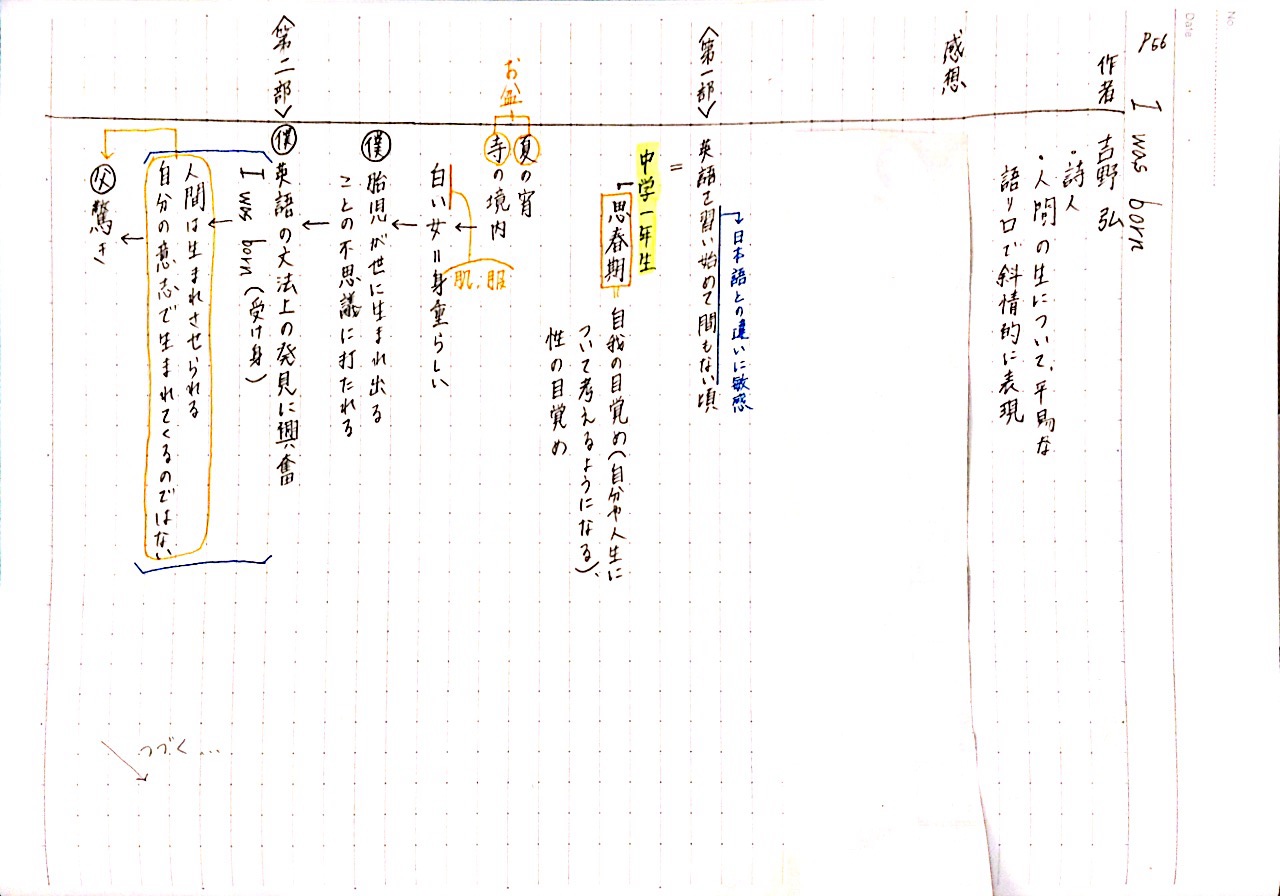 No
Date
P56
I was born
作者 吉野 弘
・詩人
・人間の生について、平易な
語り口で斜情的に表現
感想
〈第一部〉
→日本語との違いに敏感
英語で習い始めて間もない頃
=
中学一年生
思春期=自我の目覚め(自分や人生に
ついて考えるようになる)、
性の目覚め
お盆
夏の宵
寺の境内
↓
肌、服
白い女=身重らしい
↓
僕 胎児が世に生まれ出る
ことの不思議に打たれる
↓
〈第二部〉
僕 英語の文法上の発見に興奮
I was born (受け身)
↓
人間は生まれさせられる
自分の意志で生まれてくるのではない
↓
父 驚き
つづく…